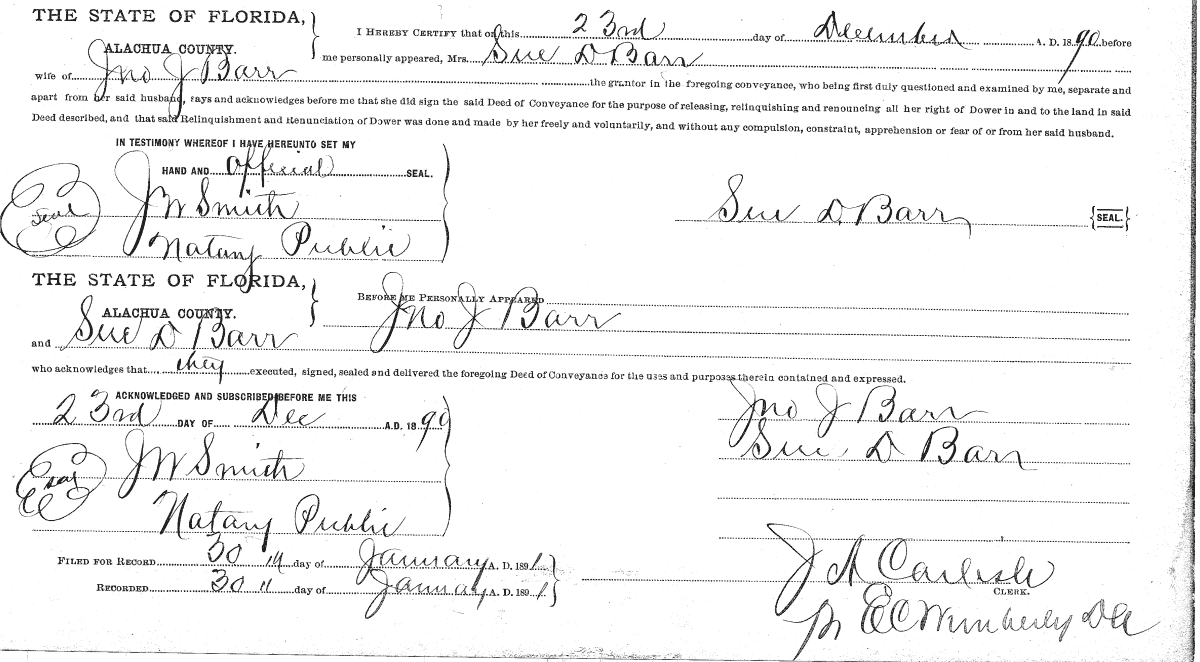 THE STATE OF FLORIDA,
ALACHUA COUNTY.
I HEREBY CERTIFY that on this 23rd day of December A. D. 1890, before
me personally appeared, Mrs. Sue D Barr
wife of Jno J Barr the grantor in the foregoing conveyance, who being first duly questioned and examined by me, separate and
apart from her said husband, says and acknowledges before me that she did sign the said Deed of Conveyance for the purpose of releasing, relinquishing and renouncing all her right of Dower in and to the land in said
Deed described, and that said Relinquishment and Renunciation of Dower was done and made by her freely and voluntarily, and without any compulsion, constraint, apprehension or fear of or from her said husband.
IN TESTIMONY WHEREOF I HAVE HEREUNTO SET MY
HAND AND official SEAL.
Seal
J W Smith
Notary Public
Sue D Barr {SEAL.}
THE STATE OF FLORIDA,
ALACHUA COUNTY.
BEFORE ME PERSONALLY APPEARED
Jno J Barr
and Sue D Barr
who acknowledges that they executed, signed, sealed and delivered the foregoing Deed of Conveyance for the uses and purposes therein contained and expressed.
ACKNOWLEDGED AND SUBSCRIBED BEFORE ME THIS
23rd DAY OF Dec A.D. 1890
Seal
J W Smith
Notary Public
Jno J Barr
Sue D Barr
FILED FOR RECORD 30 day of January A. D. 1891
RECORDED 30 day of January A. D. 1891
J A Carlisle
CLERK.
E C Wimberly DC